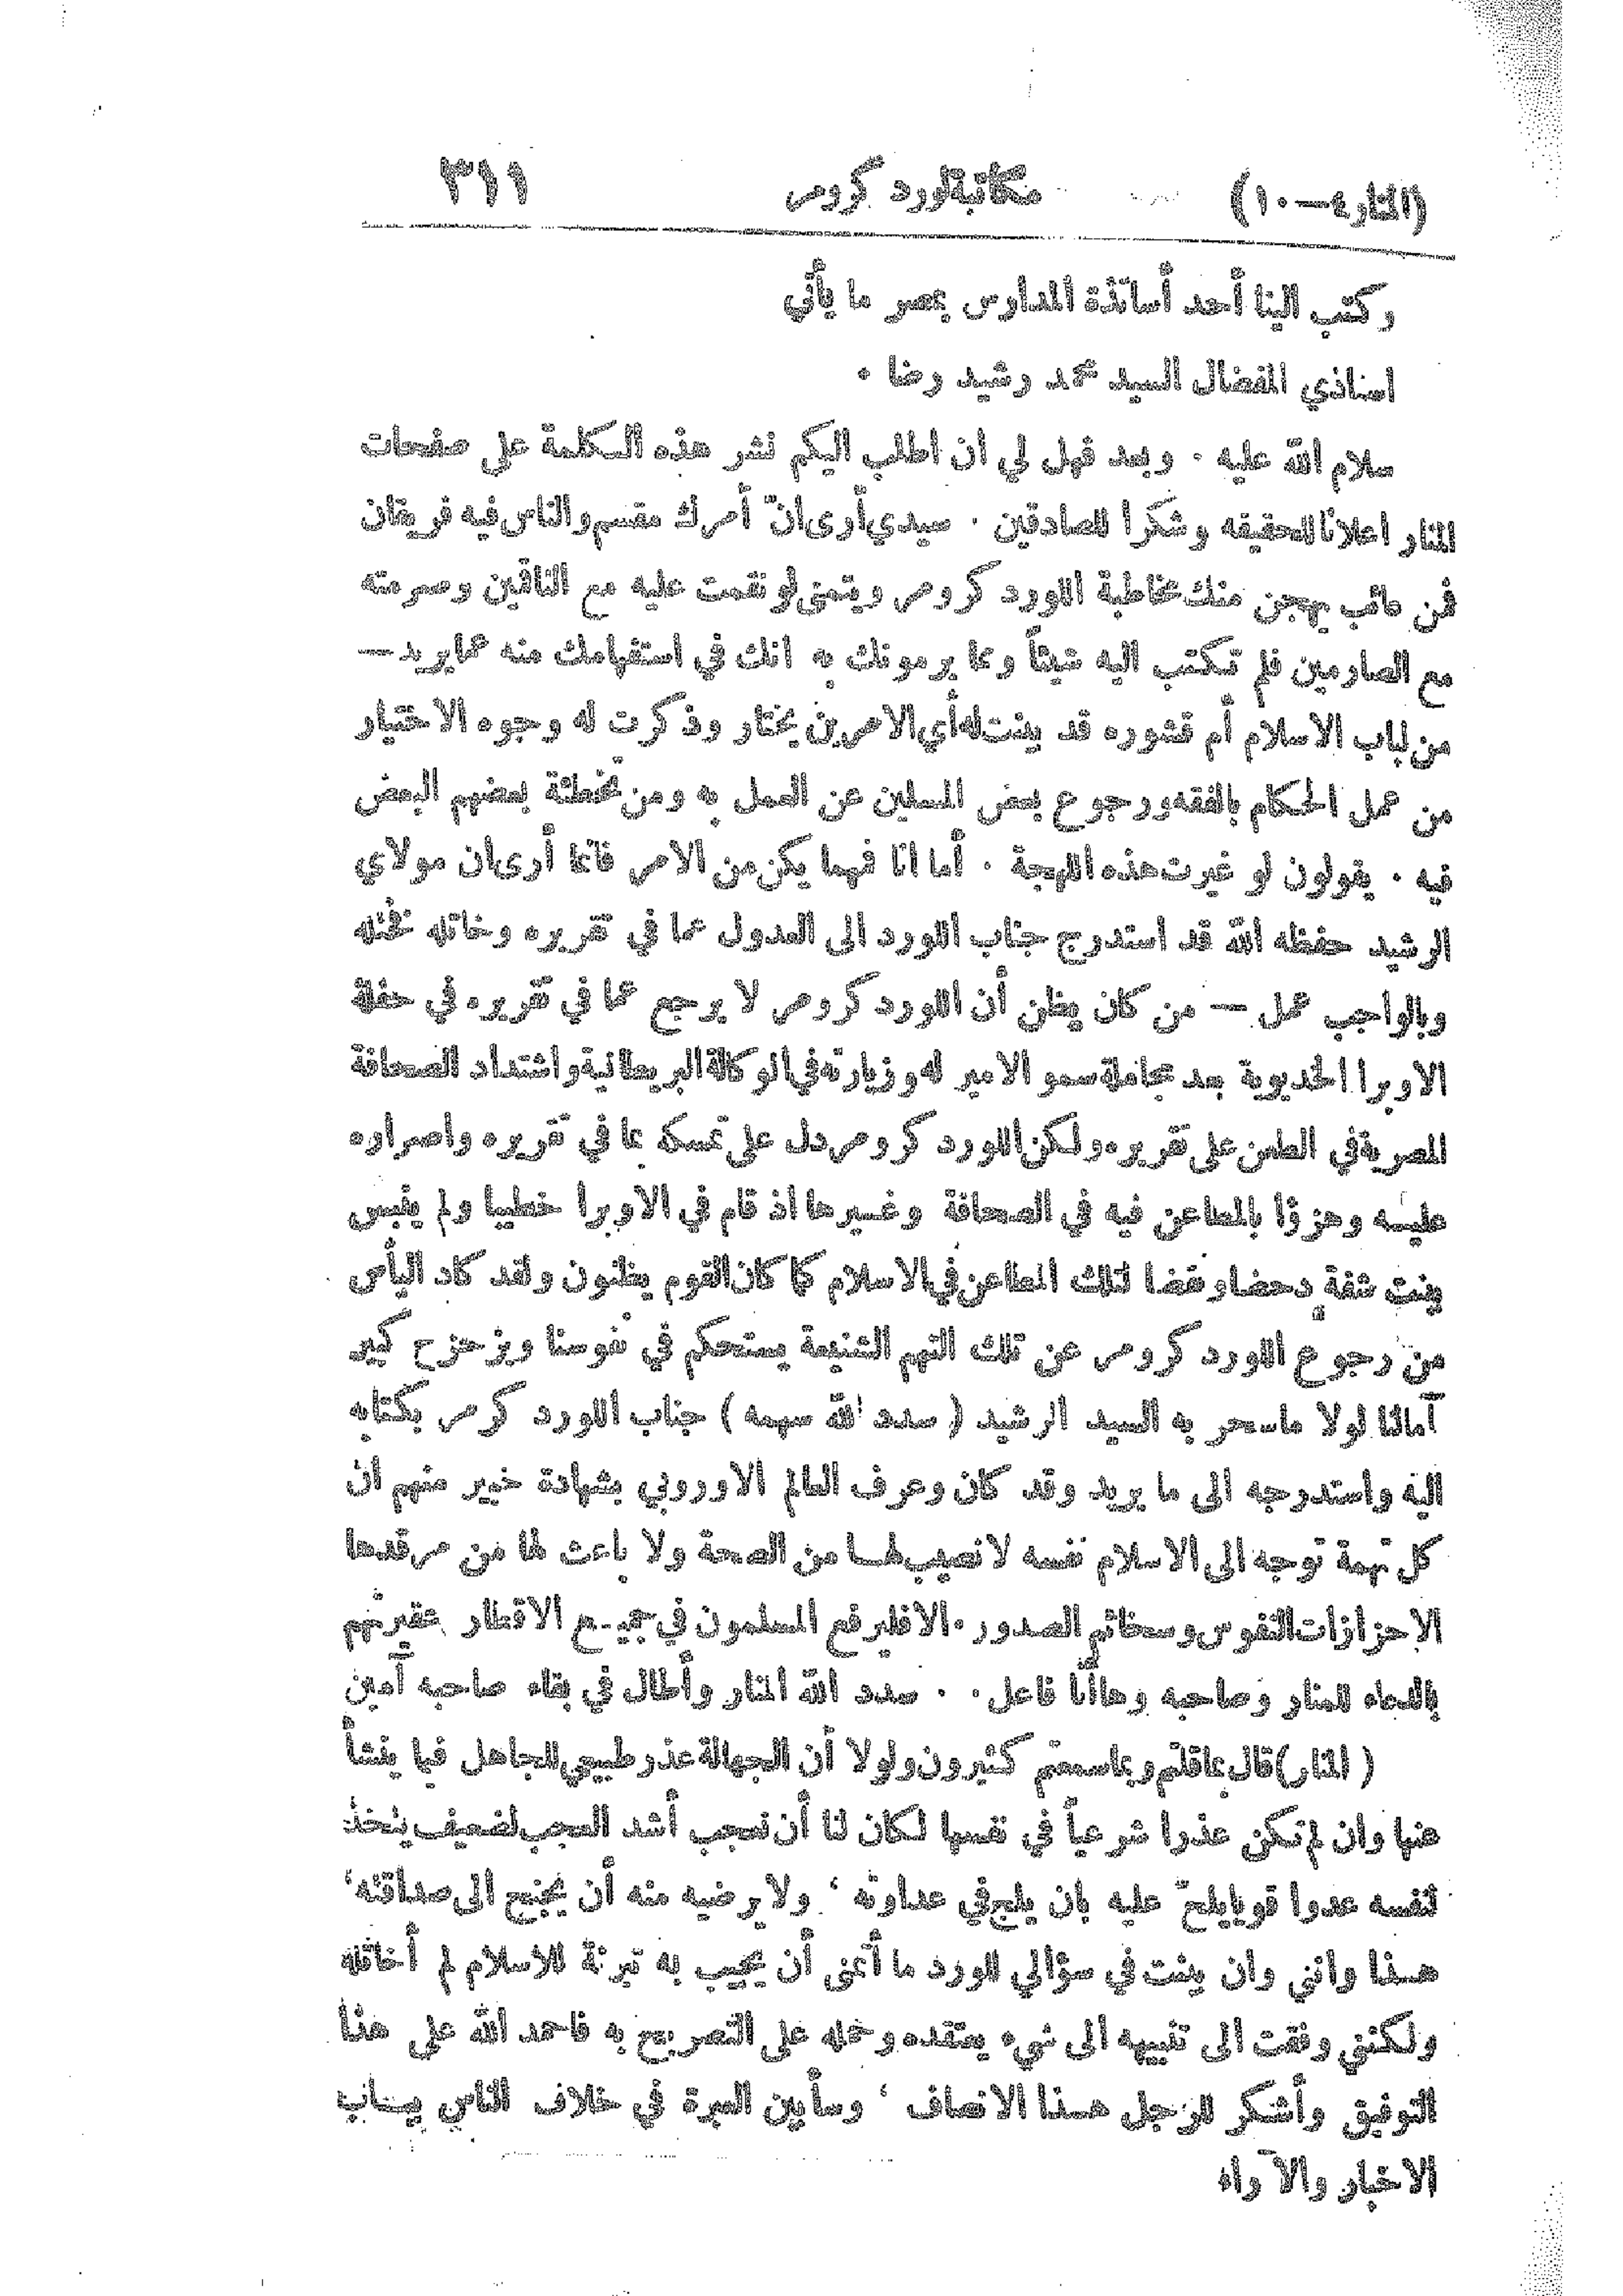 (المنار ٤ — ١٠) مكاتبة لورد كرومر ٣١١
وكتب الينا أحد أساتذة المدارس بمصر ما يأتي
استاذي المفضال السيد محمد رشيد رضا ٠
سلام الله عليه ٠ وبعد فهل لي ان اطلب اليكم نشر هذه الكلمة على صفحات
المنار اعلانا للحقيقه وشكرا للصادقين ٠ سيدي أرى انّ أمرك مقسم والناس فيه فريقان
فمن عائب يهجن منك مخاطبة اللورد كرومر ويتمنى لو نقمت عليه مع الناقين وصرمته
مع الصارمين فلم تكتب اليه شيئاً ومما يرمونك به انك في استفهامك منه عما يريد —
من لباب الاسلام أم قشوره قد بينت له أي الامرين يختار وذكرت له وجوه الاختيار
من عمل الحكام بالفقه ورجوع بعض المسلمين عن العمل به ومن تخطئة بعضهم البعض
فيه ٠ يقولون لو غيرت هذه اللهجة ٠ أما انا فمهما يكن من الامر فانما أرى ان مولاي
الرشيد حفظه الله قد استدرج جناب اللورد الى العدول عما في تقريره وخاتله فختله
وبالواجب عمل — من كان يظن أن اللورد كرومر لا يرجع عما في تقريره في حفلة
الاوبرا الخديوية بعد مجاملة سمو الامير له وزيارته في الوكالة البريطانية واشتداد الصحافة
المصرية في الطعن على تقريره ولكن اللورد كرومر دل على تمسكه بما في تقريره واصراره
عليه وهزؤا بالمطاعن فيه في الصحافة وغيرها اذ قام في الاوبرا خطيبا ولم ينبس
ببنت شفة دحضا ونقضا لتلك المطاعن في الاسلام كما كان القوم يظنون ولقد كاد اليأس
من رجوع اللورد كرومر عن تلك التهم الشنيعة يستحكم في نفوسنا ويزحزح كبير
آمالنا لولا ما سحر به السيد الرشيد ( سدد الله سهمه ) جناب اللورد كرمر بكتابه
اليه واستدرجه الى ما يريد وقد كان وعرف العالم الاوروبي بشهادة خبير منهم ان
كل تهمة توجه الى الاسلام نفسه لا نصيب لهـا من الصحة ولا باعث لها من مرقدها
الا حزازات النفوس وسخائم الصدور ٠ الا فليرفع المسلمون في جميـع الاقطار عقيرتهم
بالدعاء للمنار وصاحبه وها أنا فاعل ٠ ٠ سدد الله المنار وأطال في بقاء صاحبه آمين
( المنار ) قال بما قلتم وبما سمعتم كثيرون ولولا أن الجهالة عذر طبيعي للجاهل فيما ينشأ
عنها وان لم تكن عذرا شرعياً في نفسها لكان لنا أن نعجب أشد العجب لضعيف يتخذ
لنفسه عدوا قويا يلحّ عليه بان يلج في عداوته ، ولا يرضيه منه أن يجنح الى صداقته ،
هـذا وانني وان بينت في سؤالي للورد ما أتمنى أن يجيب به تبرئة للاسلام لم أخاتله
ولكنني وفقت الى تنبيهه الى شيء يعتقده وحمله على التصريح به فاحمد الله على هذا
التوفيق وأشكر للرجل هـذا الانصاف ، وسأبين العبرة في خلاف الناس ببـاب
الاخبار والآراء